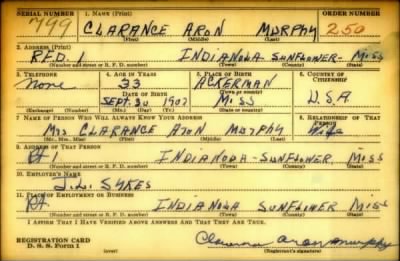 SERIAL NUMBER 1. NAME (Print) ORDER NUMBER
799 CLARANCE ARON MURPHY 250
(First) (Middle) (Last)
2. ADDRESS (Print)
RFD. 1 INDIANOLA SUNFLOWER- MISS
(Number and street or R. F. D. number) (Town) (County) (State)
3. TELEPHONE 4. AGE IN YEARS 5. PLACE OF BIRTH 6. COUNTRY OF CITIZENSHIP
None 33 ACKERMAN
DATE OF BIRTH (Town or county)
SEPT. 30 1907 MISS U.S.A.
(Exchange) (Number) (Mo.) (Day) (Yr.) (State or country)
7. NAME OF PERSON WHO WILL ALWAYS KNOW YOUR ADDRESS 8. RELATIONSHIP OF THAT PERSON
Mrs CLARANCE Aron MURPHY Wife
(Mr., Mrs., Miss) (First) (Middle) (Last)
9. ADDRESS OF THAT PERSON
Rt 1 INDIANOLA-SUNFLOWER MISS
(Number and street or R. F. D. number) (Town) (County) (State)
10. EMPLOYER'S NAME
SYKES
11. PLACE OF EMPLOYMENT OR BUSINESS
INDIANOLA SUNFLOWER MISS
(Number and street or R. F. D. number) (Town) (County) (State)
I AFFIRM THAT I HAVE VERIFIED ABOVE ANSWERS AND THAT THEY ARE TRUE.
REGISTRATION CARD
D. S. S. Form 1 (Registrant's signature)
(over)